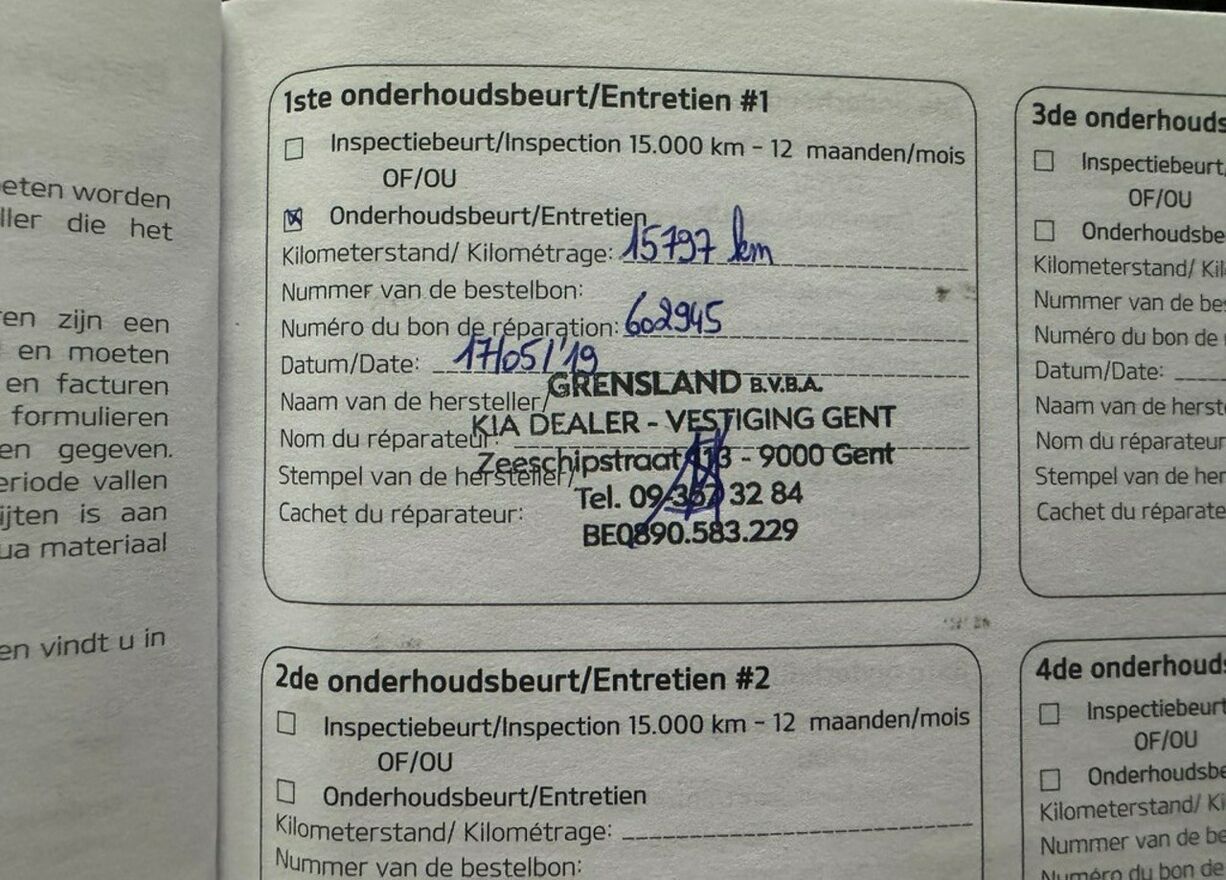 eten worden
ller die het
ren zijn een
en moeten
en facturen
formulieren
en gegeven.
eriode vallen
ijten is aan
ua materiaal
en vindt u in
1ste onderhoudsbeurt/Entretien #1
Inspectiebeurt/Inspection 15.000 km - 12 maanden/mois
OF/OU
Onderhoudsbeurt/Entretien
Kilometerstand/ Kilométrage: 15797 km
Nummer van de bestelbon:
Numéro du bon de réparation: 602945
Datum/Date: 17/05/'19
GRENSLAND B.V.B.A.
Naam van de hersteller/
KIA DEALER - VESTIGING GENT
Nom du réparateur:
Zeeschipstraat 113 - 9000 Gent
Stempel van de hersteller/
Tel. 09 367 32 84
Cachet du réparateur:
BE0890.583.229
2de onderhoudsbeurt/Entretien #2
Inspectiebeurt/Inspection 15.000 km - 12 maanden/mois
OF/OU
Onderhoudsbeurt/Entretien
Kilometerstand/ Kilométrage:
Nummer van de bestelbon:
3de onderhouds
Inspectiebeurt/
OF/OU
Onderhoudsbe
Kilometerstand/ Kil
Nummer van de bes
Numéro du bon de
Datum/Date:
Naam van de herste
Nom du réparateur
Stempel van de her
Cachet du réparate
4de onderhouds
Inspectiebeurt
OF/OU
Onderhoudsbe
Kilometerstand/ K
Nummer van de be
Numéro du bon de